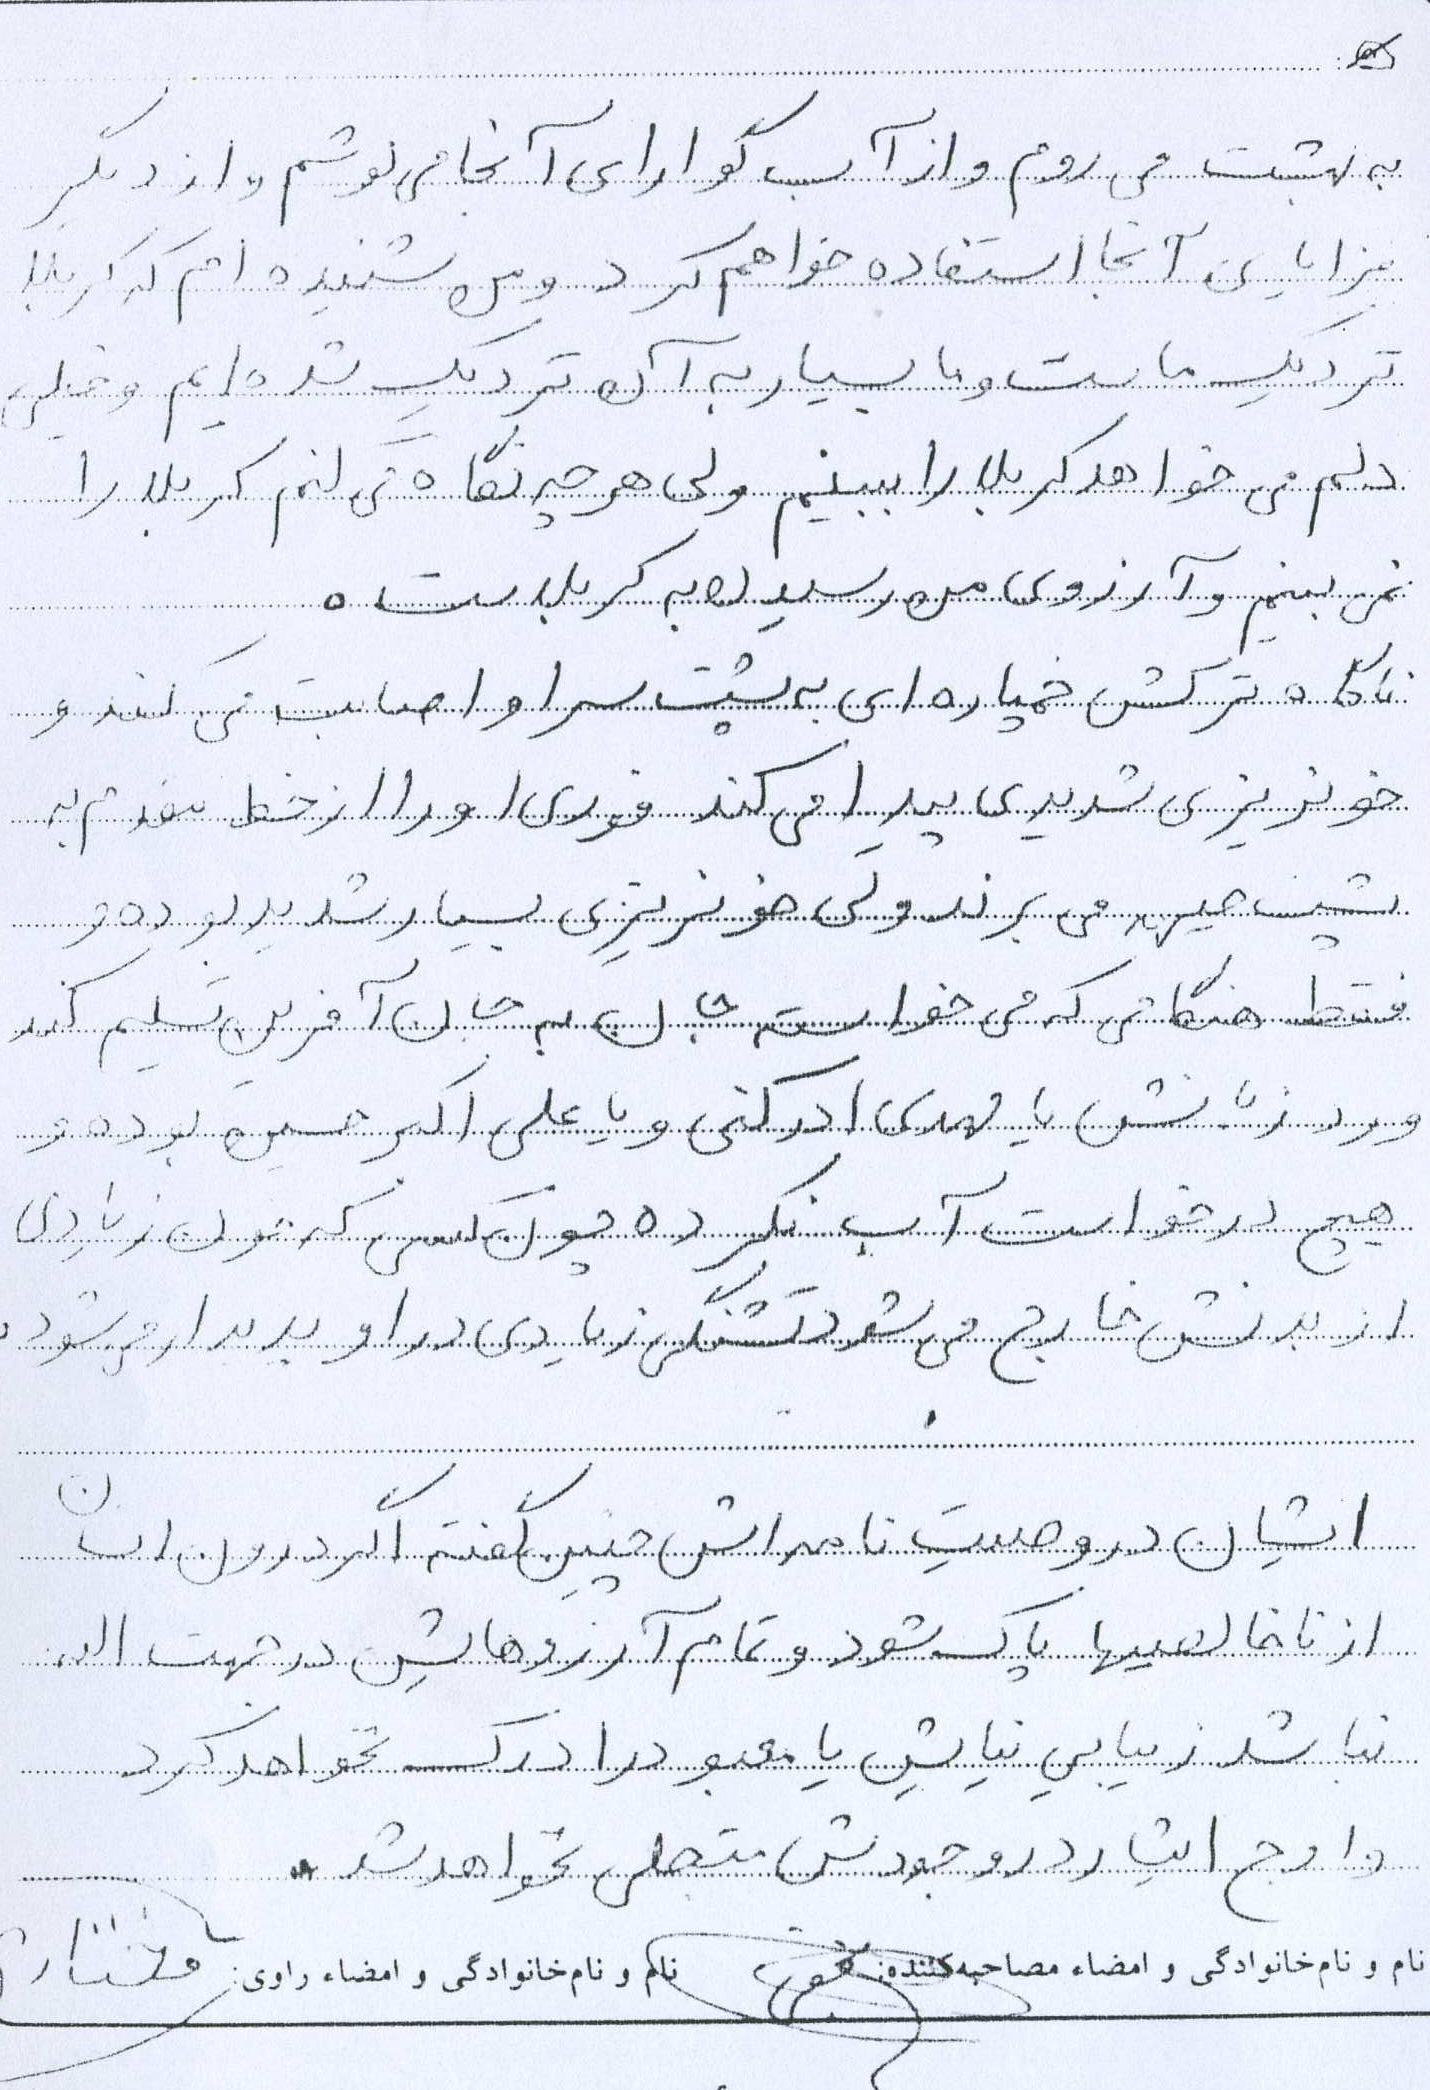 به بهشت می روم و از آب گوارای آنجا می نوشم و از دیگر
مزایایی آنجا استفاده خواهم کرد و من شنیده ام که کربلا
نزدیک ماست و ما بسیار به آن نزدیک شده ایم و خیلی
دلم می خواهد کربلا را ببینم ولی هر چه نگاه می کنم کربلا را
نمی بینم و آرزوی من رسیدن به کربلاست.
ناگاه ترکش خمپاره ای به پشت سر او اصابت می کند و
خونریزی شدیدی پیدا می کند فوری او را از خط مقدم به
پشت جبهه می برند ولی خونریزی بسیار شدید بوده و
فقط هنگامی که می خواسته جان به جان آفرین تسلیم کند
ورد زبانش یا مهدی ادرکنی و یا علی اکبر حسین بوده و
هیچ درخواست آب نکرده چون کسی که خون زیادی
از بدنش خارج می شود تشنگی زیادی در او پدیدار می شود.
ایشان در وصیت نامه اش چنین گفته اگر درون انسان
از ناخالصیها پاک شود و تمام آرزوهایش در جهت الله
نباشد زیبایی نیایش یا معبود را درک نخواهد کرد
و اوج ایثار در وجودش متجلی نخواهد شد.
نام و نام خانوادگی و امضاء مصاحبه کننده: نام و نام خانوادگی و امضاء راوی: